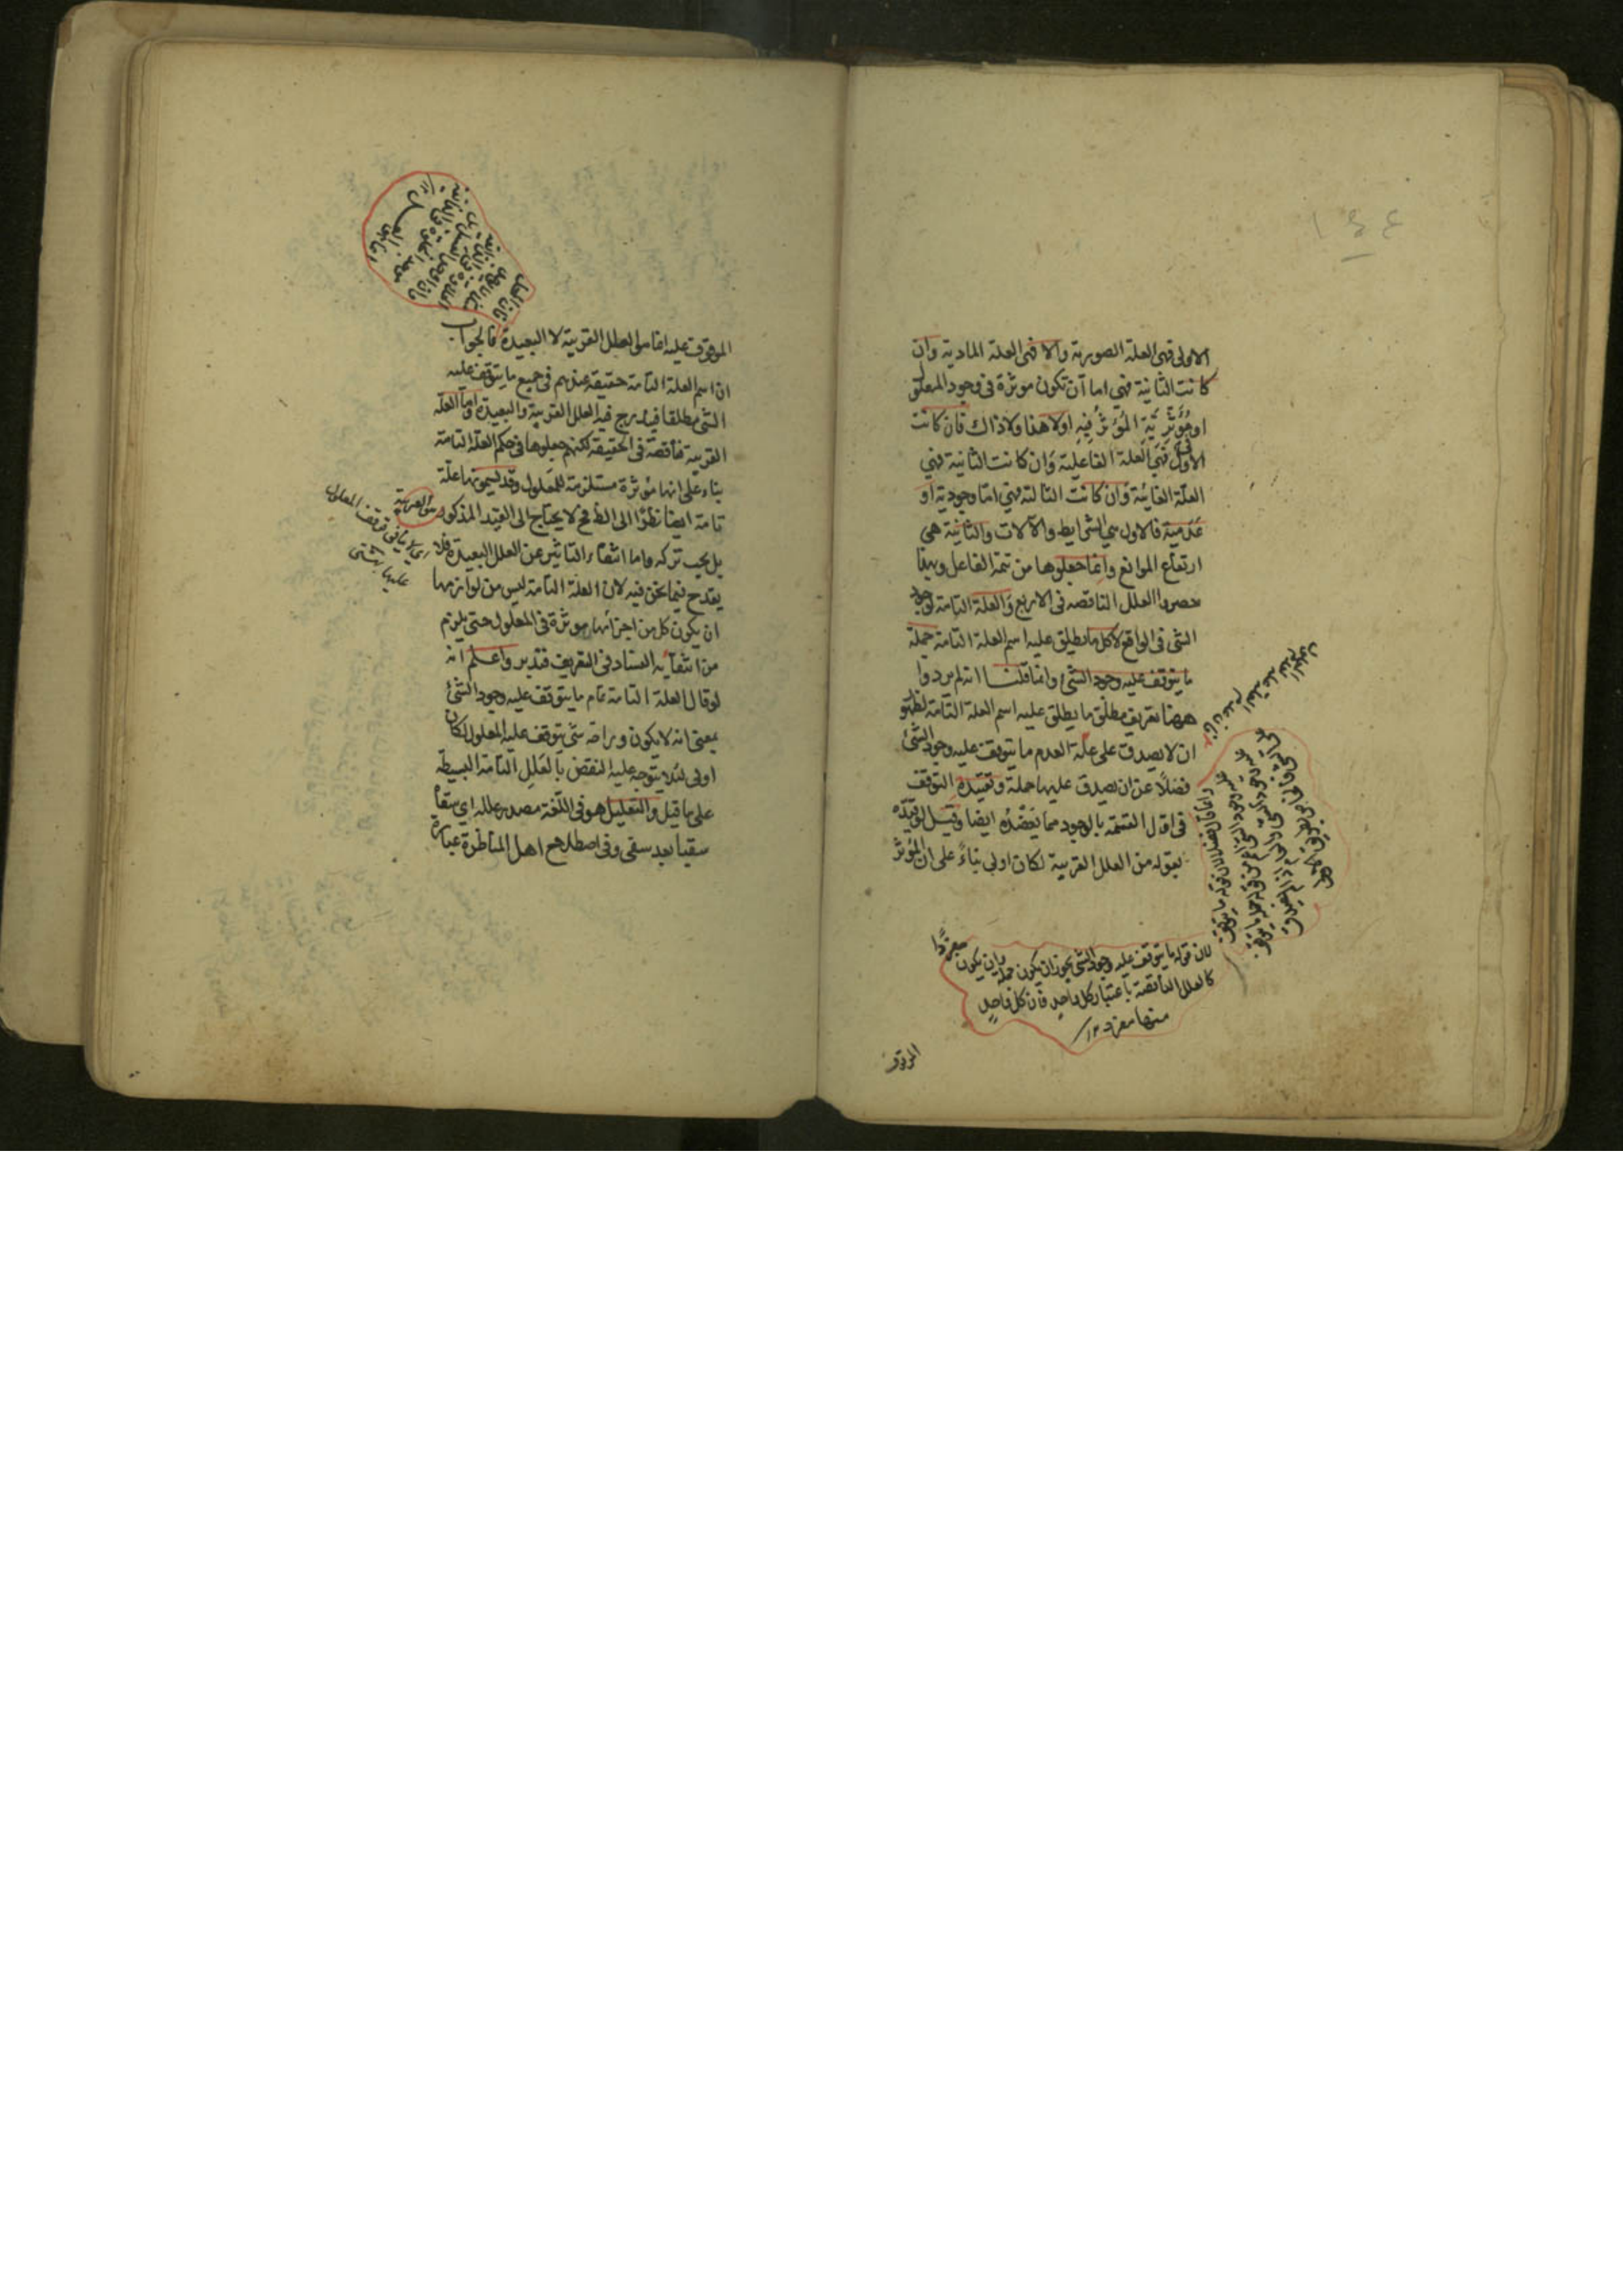 الاولى فهى العلة الصورية والا فهى العلة المادية وان
كانت الثانية فهى اما ان تكون موثرة فى وجود المعلول
او فى مُؤثِّريَّةِ المُؤثّرُ فِيهِ اولا هذا ولا ذاك فان كانت
الاول فهى العلة الفاعلية وان كانت الثانية فهى
العلّة الغائية وان كانت الثالثة فهى امّا وجودية او
عدمية فالاول هى الشرايط والآلات والثانية هى
ارتفاع الموانع وانما جعلوها من تتمة الفاعل وبهذا
حصروا العلل الناقصه فى الاربع والعلة التامة لوجود
الشى فى الواقع لا كل ما يطلق عليه اسم العلة التامة جملة
ما يتوقف عليه وجود الشئ وانما قلنا انه لم يردوا
ههنا تعريف مطلق ما يطلق عليه اسم العلة التامة لظهو
ان لا يصدق على علة العدم ما يتوقف عليه وجود الشئ
فضلًا عن ان يصدق عليها جملة وتقييده التوقف
فى اول القسمة بالوجود مما يَعْضُدُه ايضا وقيل لو قيّده
بقوله من العلل القريبة لكان اولى بناءً على ان المؤثر
لان قوله ما يتوقف عليه وجود الشى يجوز ان يكون جملة وان يكون مفردًا
كالعلل الناقصة باعتبار كل واحد فان كل واحدٍ
منها مفرد ١٢
الموقوف
الموقوف عليه انما هو العلل القريبة لا البعيدة فالجواب
ان اسم العلة التامة حقيقة عندهم فى جميع ما يتوقف عليه
الشى مطلقا فيدرج فيه العلل القريبة والبعيدة واما العلة
القريبة ناقصة فى الحقيقة لكنهم جعلوها فى حكم العلة التامة
بناء على انها مؤثرة مستلزمة للمعلول وقد يسمونها علّة
تامة ايضا نظرًا الى الظ فح لا يحتاج الى القيد المذكور
بل يجب تركه واما انتفاء التاثير عن العلل البعيدة فلا
يقدح فيما نحن فيه لان العلة التامة ليس من لوازمها
ان يكون كل من اجزائها موثرة فى المعلول حتى يلزم
من انتفايه الفساد فى التعريف فتدبر واعلم انه
لو قال العلة التامة تمام ما يتوقف عليه وجود الشئ
بمعنى انه لا يكون وراءه شئ يتوقف عليه المعلول لكان
اولى لئلا يتوجه عليه النقض بالعلل التامة البسيطة
على ما قيل والتعليل هو فى اللغة مصدر علله اى سقاه
سقيا بعد سقى وفى اصطلاح اهل المناظرة عبارة